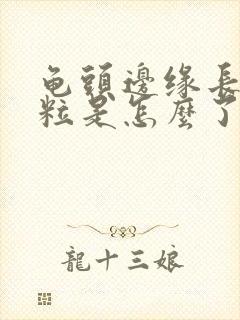 龟頭邊缘長
粒是怎麼了
龍十三娘